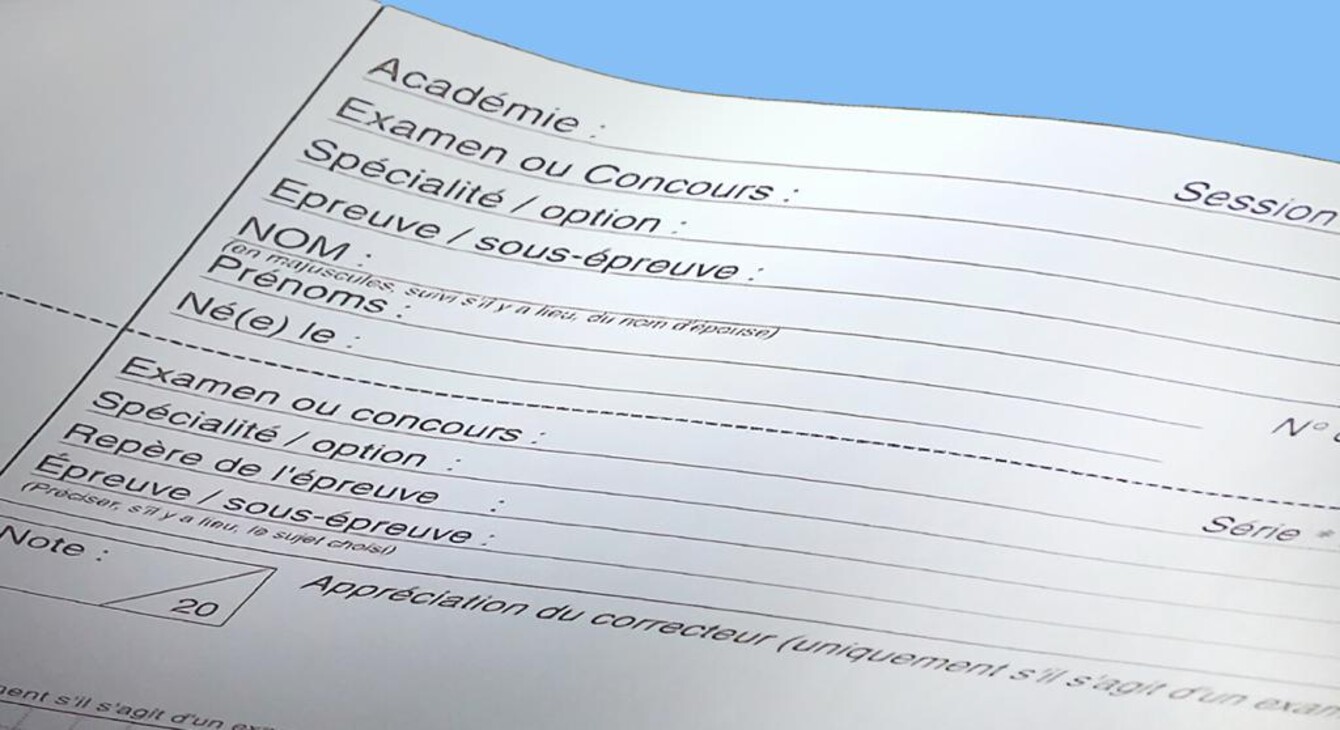 Académie :
Session
Examen ou Concours :
Spécialité / option :
Epreuve / sous-épreuve :
NOM :
(en majuscules, suivi s'il y a lieu, du nom d'épouse)
Prénoms :
N°
Né(e) le :
Examen ou concours :
Série *
Spécialité / option :
Repère de l'épreuve :
Épreuve / sous-épreuve :
(Préciser, s'il y a lieu, le sujet choisi)
Note :
20
Appréciation du correcteur (uniquement s'il s'agit d'un exam
ment s'il s'agit d'un ex